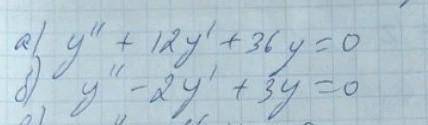 а) y'' + 12y' + 36y = 0
б) y'' - 2y' + 3y = 0